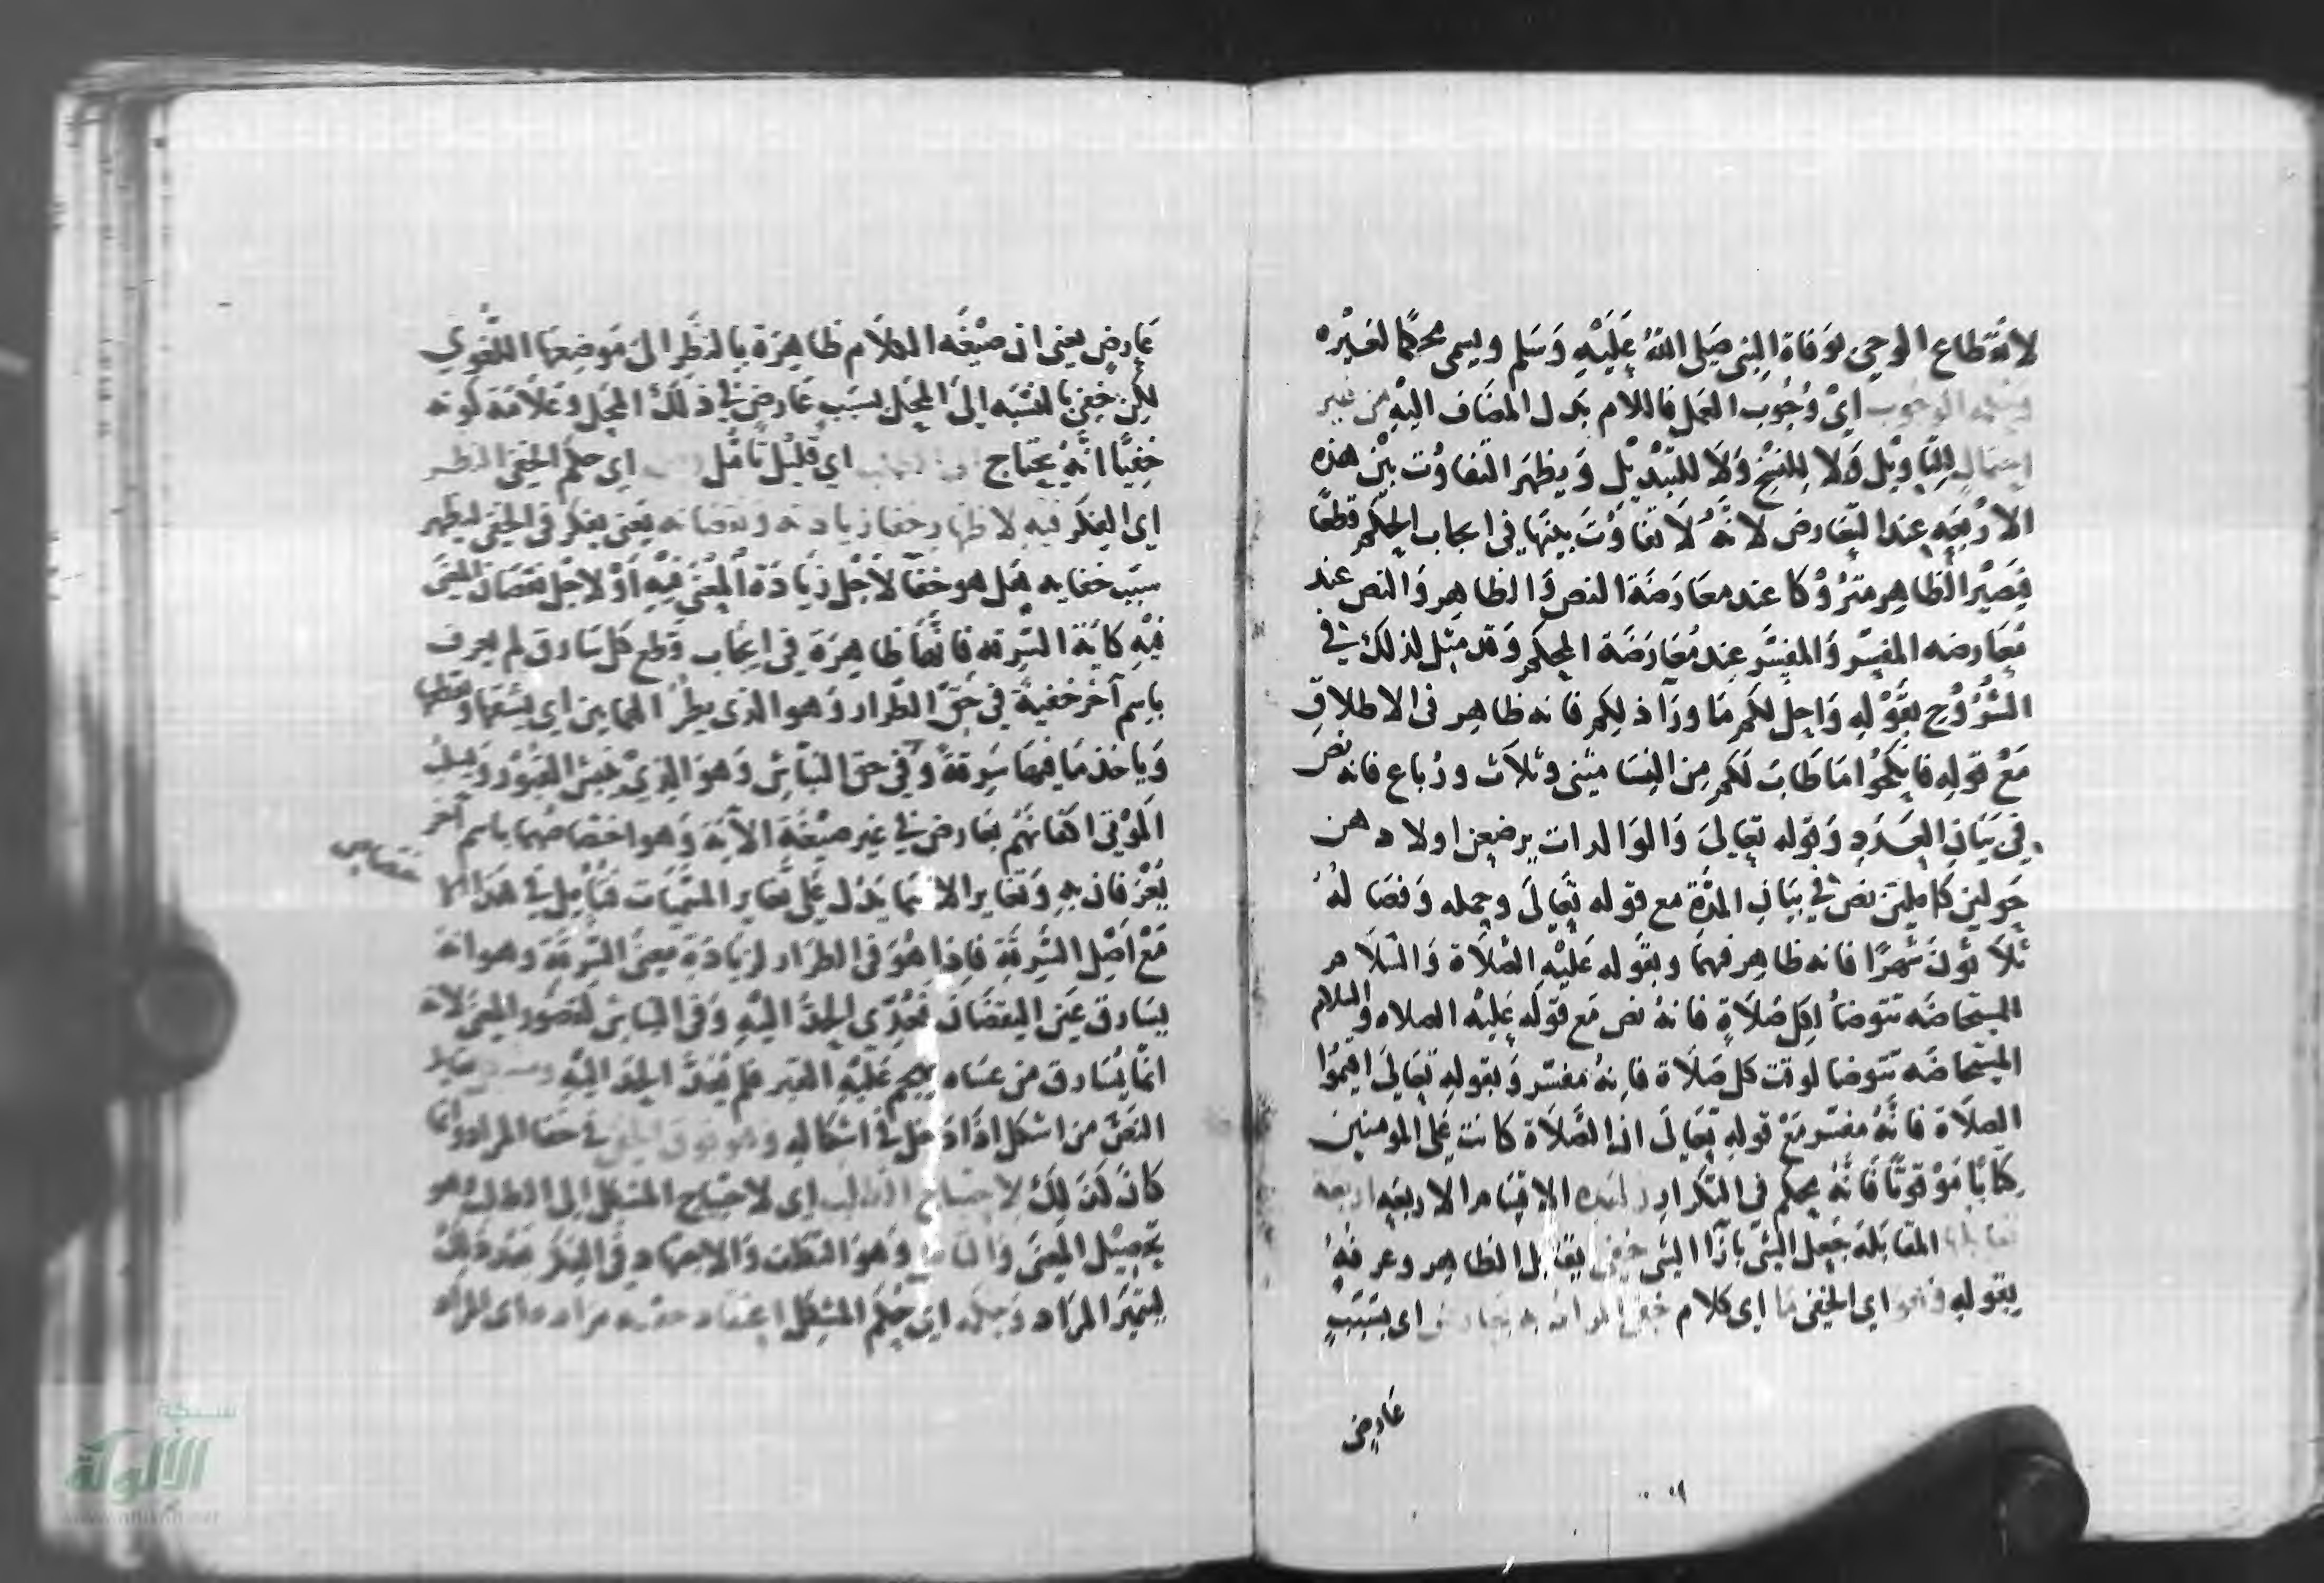 لانقطاع الوحي بوفاة النبي صلى الله عليه وسلم ويسمى محكما لغيره
وحكمه الوجوب اي وجوب العمل فاللام بدل المضاف اليه من غير
احتمال للتاويل ولا للنسخ ولا للتبديل ويظهر التفاوت بين هذه
الاربعه عند التعارض لانه لا تفاوت بينها في ايجاب الحكم قطعا
فيصير الظاهر متروكا عند معارضة النص والظاهر والنص عند
معارضه المفسر والمفسر عند معارضة المحكم وقد مثل لذلك في
الشروح بقوله واحل لكم ما ورآ ذلكم فانه ظاهر في الاطلاق
مع قوله فانكحوا ما طاب لكم من النسا مثنى وثلاث ورباع فانه نص
في بيان العدد وقوله تعالى والوالدات يرضعن اولادهن
حولين كاملين نص في بيان المدة مع قوله تعالى وحمله وفصاله
ثلاثون شهرا فانه ظاهر فيهما وبقوله عليه الصلاة والسلام
المستحاضه تتوضأ لكل صلاة فانه نص مع قوله عليه الصلاه والسلام
المستحاضه تتوضا لوقت كل صلاة فانه مفسر وبقوله تعالى اقيموا
الصلاة فانه مفسر مع قوله تعالى ان الصلاة كانت على المومنين
كتابا موقوتا فانه محكم في التكرار ولهذه الاقسام الاربعه اربعة
تقابلها المقابلة جعل الشي بازا الشي خفي يقابل الظاهر وعرفه
بقوله وهو اي الخفي ما اي كلام خفي المراد به بعارض اي بسبب
عارض
عارض يعني ان صيغه الكلام ظاهرة بالنظر الى موضعها اللغوي
لكن خفي بالنسبه الى المحل بسبب عارض في ذلك المحل وعلامة كونه
خفيا انه يحتاج الى الطلب اي قليل تامل اي حكم الخفي النظر
اي الفكر فيه لاظهار خفا زيادته ونقصانه يعني يفكر في الخفي ليظهر
سبب خفايه هل هو خفا لاجل زيادة المعنى فيه او لاجل نقصان المعنى
فيه كاية السرقه فانها ظاهرة في ايجاب قطع كل سارق لم يعرف
باسم آخر خفية في حق الطرار وهو الذي يطر الهمايين اي يشقها ويقطعها
وياخذ ما فيها سرقة وفي حق النباش وهو الذي ينبش القبور ويسلب
الموتى اكفانهم بعارض في غير صيغة الآية وهو اختصاصهما باسم آخر
يعرفان به وتغاير الاسما يدل على تغاير المسميات فتامل في هذا
مع اصل السرقة فاذا هو في الطرار لزيادة معنى السرقة وهو انه
يسارق عين اليقظان فعدي الحد اليه وفي النباش لقصور المعنى لانه
انما يسارق من عساه يهجم عليه الغير فلم يعد الحد اليه
النص من اشكل اذا دخل في اشكاله وهو فوق الخفي في خفا المراد وانما
كان كذلك لاحتياج الطلب اي لاحتياج المشكل الى الطلب هو
تحصيل المعنى والتامل وهو التكلف والاجتهاد في الفكر
ليتميز المراد وحكمه اي حكم المشكل اعتقاد حقيه مراده اي المراد